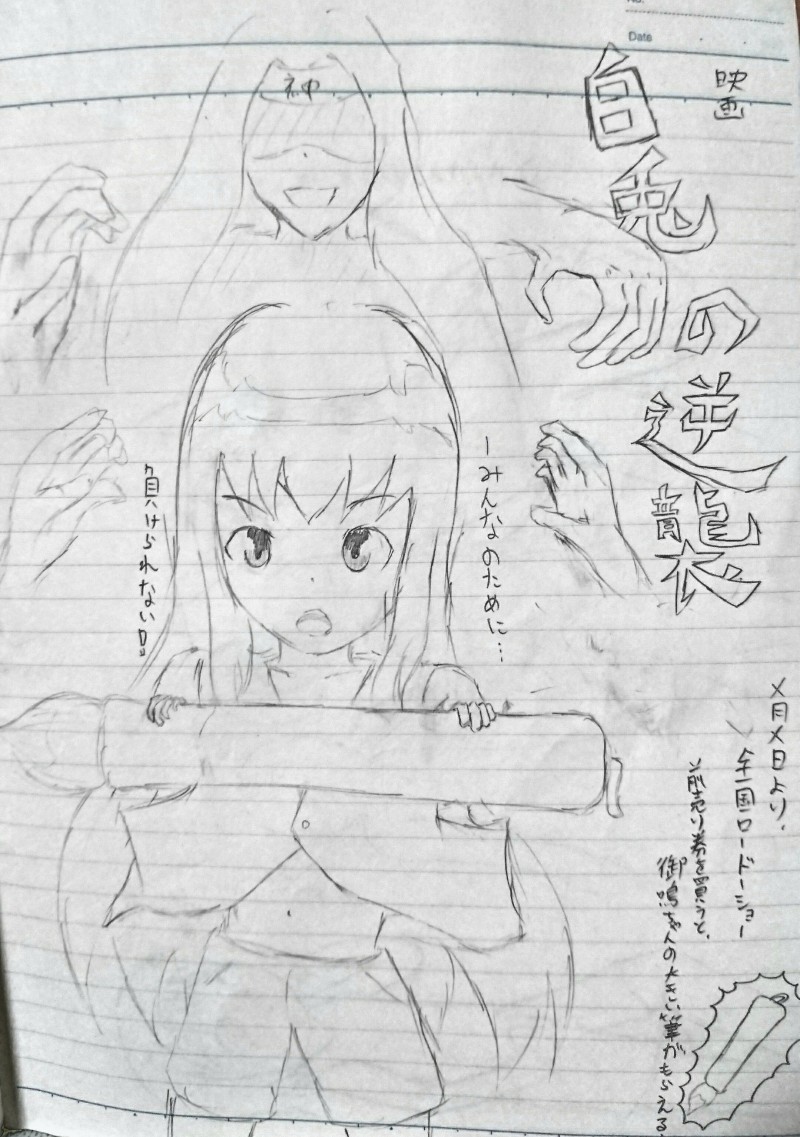 No.
Date
映画
白兎の逆襲
神
ーみんなのために…
負けられない!!
×月×日より、
全国ロードーショー
前売り券を買うと、
御鳴ちゃんの大きい筆がもらえる